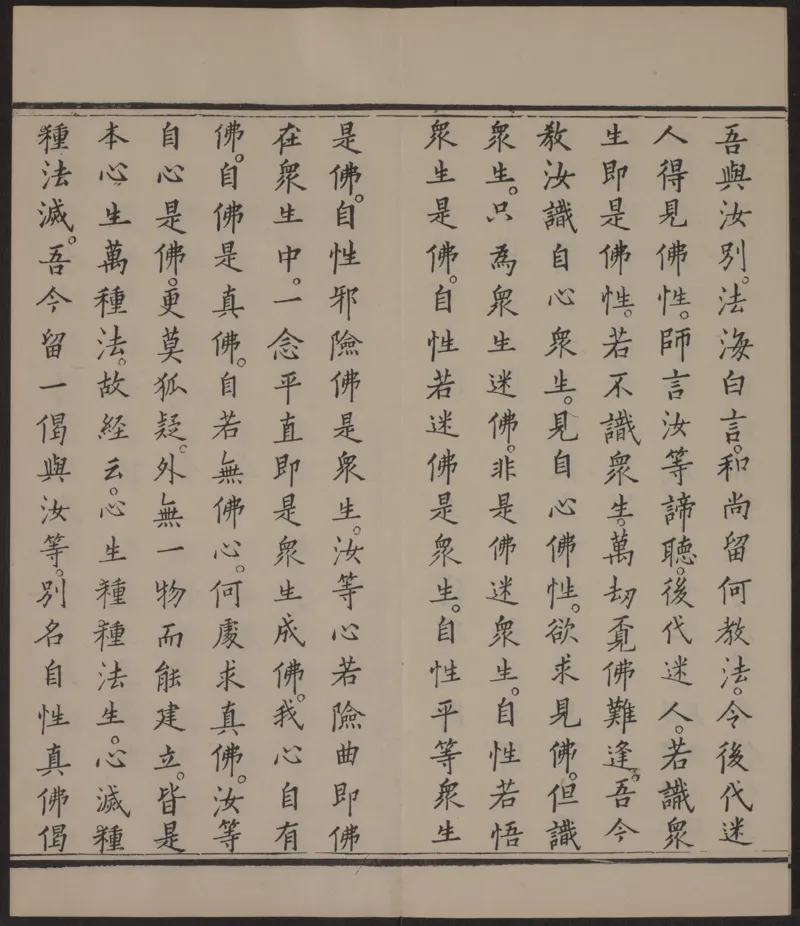 吾與汝別。法海白言。和尚留何教法。令後代迷
人得見佛性。師言汝等諦聽。後代迷人。若識衆
生即是佛性。若不識衆生。萬刧覔佛難逢。吾今
教汝識自心衆生。見自心佛性。欲求見佛。但識
衆生。只為衆生迷佛。非是佛迷衆生。自性若悟
衆生是佛。自性若迷佛是衆生。自性平等衆生
是佛。自性邪險佛是衆生。汝等心若險曲即佛
在衆生中。一念平直即是衆生成佛。我心自有
佛。自佛是真佛。自若無佛心。何處求真佛。汝等
自心是佛。更莫狐疑。外無一物而能建立。皆是
本心生萬種法。故經云。心生種種法生。心滅種
種法滅。吾今留一偈與汝等。別名自性真佛偈